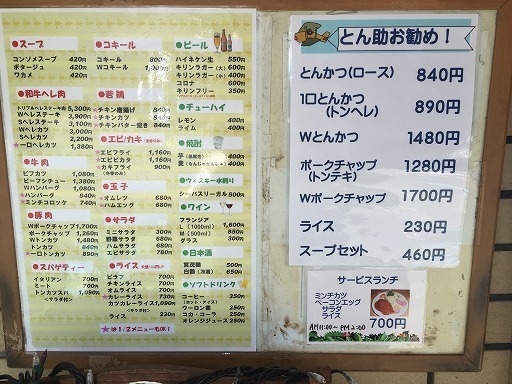 ●スープ
コンソメスープ 420円
ポタージュ 420円
ワカメ 420円
●和牛ヘレ肉
トリプルヘレステーキ 5,300円
Wヘレステーキ 3,900円
Sヘレステーキ 3,100円
Wヘレカツ 3,000円
Sヘレカツ 2,200円
★一口ヘレカツ 1,300円
●牛肉
ビフカツ 1,080円
ビーフシチュー 1,380円
Wハンバーグ 1,080円
★ハンバーグ 840円
★ミンチコロッケ 740円
●豚肉
Wポークチャップ 1,700円
ポークチャップ 1,260円
Wトンカツ 1,480円
トンカツ 840円
★一口トンカツ 890円
●スパゲティー
イタリアン
ミート
トンカツスパ
●コキール
コキール 800円
Wコキール
●若鶏
★チキン唐揚げ 840円
★チキンカツ 840円
チキンバター焼き 840円
●エビ/カキ
★エビフライ
★エビカツ
★カキフライ
●玉子
★オムレツ 680円
★ハムエッグ 680円
●サラダ
ミニサラダ 300円
野菜サラダ
ハムサラダ
エビサラダ 780円
●ライス
ピラフ
チキンライス
オムライス
★カレーライス
カツカレーライス
ライス 230円
★は1/2メニューもOK！
●ビール
ハイネケン生 550円
キリンラガー(大) 600円
キリンラガー(小) 400円
コロナ 600円
キリンフリー 350円
●チューハイ
レモン 400円
ライム 400円
●焼酎
●ウィスキー水割り
シーバスリーガル 500円
●ワイン
フランジア
L (1000ml) 1,600円
M (500ml) 850円
グラス 300円
●日本酒
賀茂鶴 500円
白鶴
●ソフトドリンク
コーヒー 350円
(ホット・アイス)
ウーロン茶 250円
コカ・コーラ 250円
オレンジジュース 250円
とん助お勧め！
とんかつ(ロース) 840円
1口とんかつ 890円
(トンヘレ)
Wとんかつ 1480円
ポークチャップ 1280円
(トンテキ)
Wポークチャップ 1700円
ライス 230円
スープセット 460円
サービスランチ
ミンチカツ
ベーコンエッグ
サラダ
ライス
700円
AM 11:00〜PM 2:00